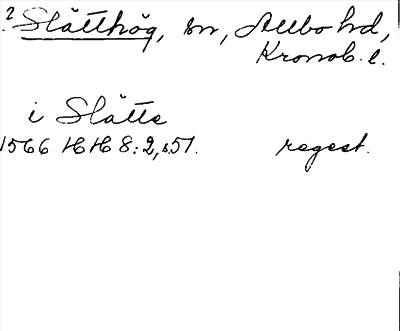 2 Slätthög, sn, Allbo hd,
Kronob. l.
i Slätte
1566 HH 8:2, s.51. regest.